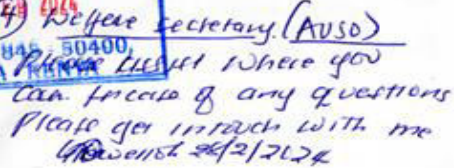 4) Welfare secretary (AUSO)
80400,
KENYA
Please assist where you
can. Incase of any questions
Please get intouch with me
26/2/2024